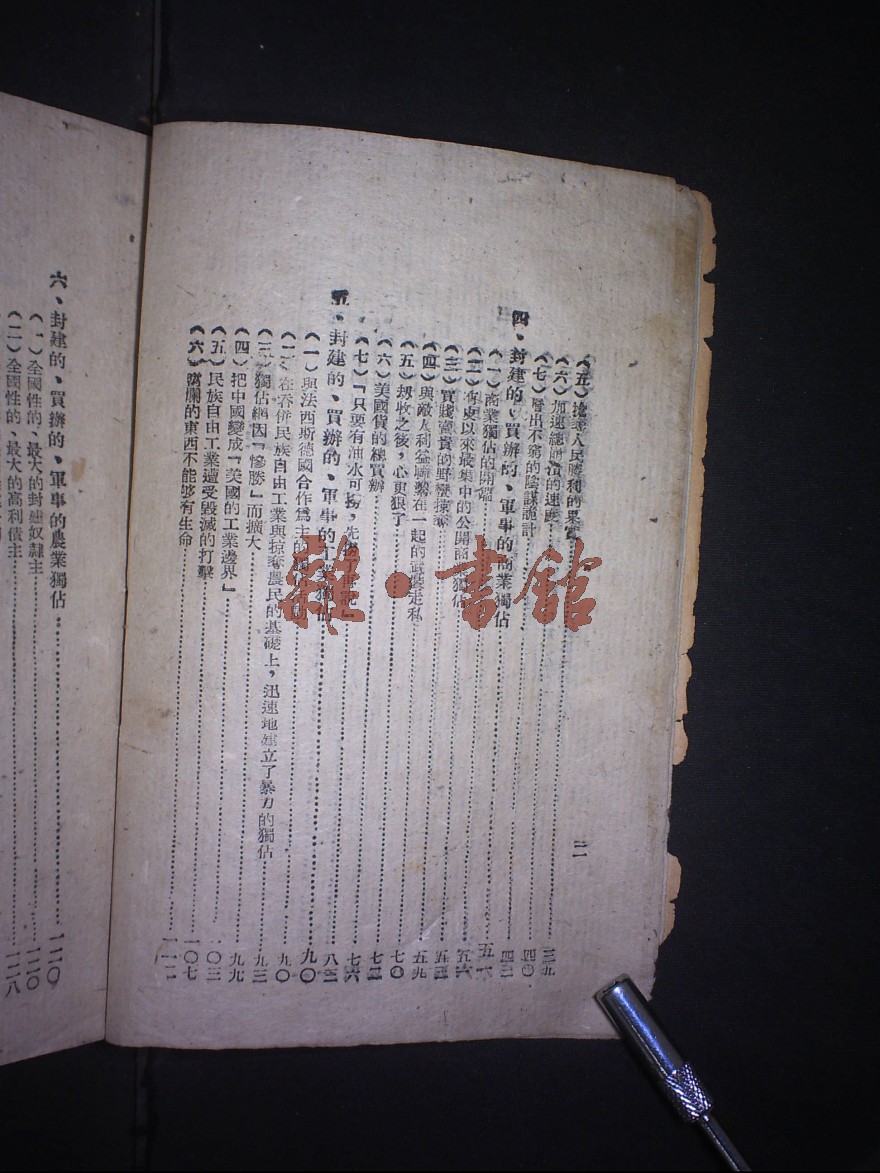 二
(五)掠奪人民勝利的果實 三九
(六)加速總崩潰的速度 四〇
(七)層出不窮的陰謀詭計 四二
四、封建的、買辦的、軍事的商業獨佔
(一)商業獨佔的開端
(二)有史以來最集中的公開商業獨佔
(三)買賤賣貴的野蠻掠奪
(四)與敵人利益聯繫在一起的武裝走私 五九
(五)刼收之後,心更狠了 七〇
(六)美國貨的總買辦
(七)「只要有油水可撈,先撈了再說」 七六
五、封建的、買辦的、軍事的工業獨佔
(一)與法西斯德國合作爲主的獨佔 九〇
(二)在吞併民族自由工業與掠奪農民的基礎上,迅速地建立了暴力的獨佔 九〇
(三)獨佔網因「慘勝」而擴大 九三
(四)把中國變成「美國的工業邊界」 九九
(五)民族自由工業遭受毀滅的打擊 一〇三
(六)腐爛的東西不能够有生命
六、封建的、買辦的、軍事的農業獨佔 一二〇
(一)全國性的、最大的封建奴隸主 一二〇
(二)全國性的、最大的高利債主 一二八
雜·書館